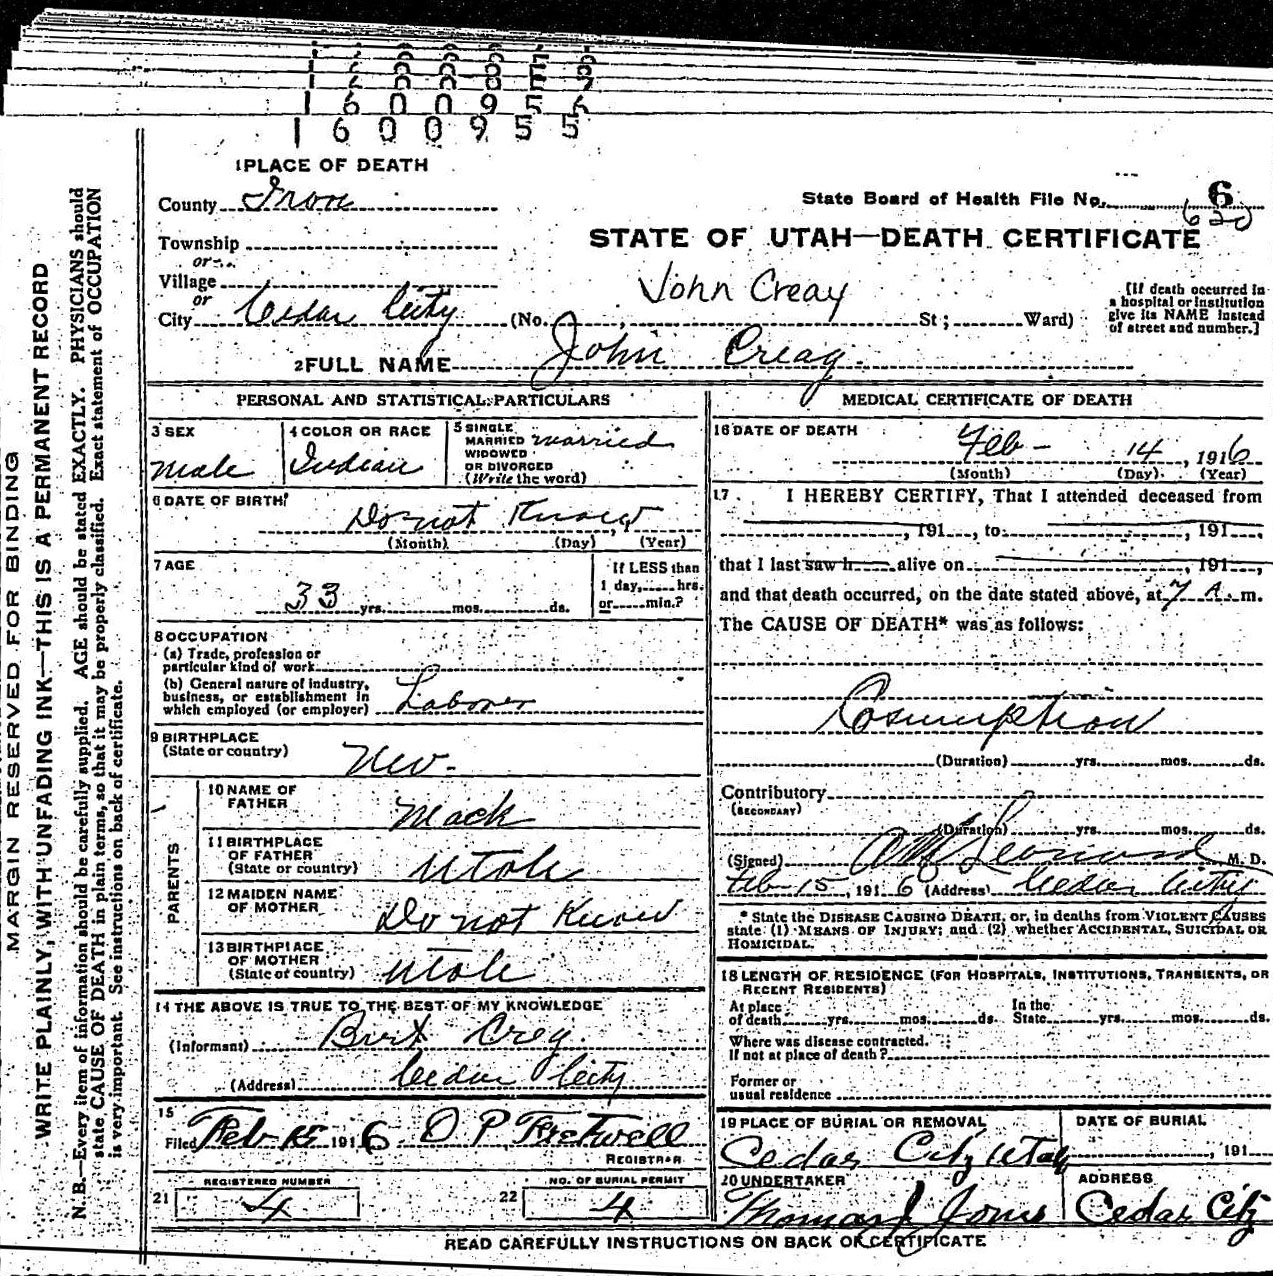 1600955
1 PLACE OF DEATH
County Iron
State Board of Health File No. 6
620
Township
or
STATE OF UTAH—DEATH CERTIFICATE
Village
or
John Creay
[If death occurred in
a hospital or institution
give its NAME instead
of street and number.]
City Cedar City (No. St; Ward)
2 FULL NAME John Creay.
PERSONAL AND STATISTICAL PARTICULARS
3 SEX
male
4 COLOR OR RACE
Indian
5 SINGLE
MARRIED
WIDOWED
OR DIVORCED
(Write the word)
married
6 DATE OF BIRTH
Do not Know
(Month) (Day) (Year)
7 AGE
33 yrs. mos. ds.
If LESS than
1 day, hrs.
or min.?
8 OCCUPATION
(a) Trade, profession or
particular kind of work
(b) General nature of industry,
business, or establishment in
which employed (or employer) Laborer
9 BIRTHPLACE
(State or country) Nev.
PARENTS
10 NAME OF
FATHER Mack
11 BIRTHPLACE
OF FATHER
(State or country) Utah
12 MAIDEN NAME
OF MOTHER Do not Know
13 BIRTHPLACE
OF MOTHER
(State or country) Utah
14 THE ABOVE IS TRUE TO THE BEST OF MY KNOWLEDGE
(Informant) Burt Crey.
(Address) Cedar City
15
Filed Feb 15 1916. O P Fretwell
REGISTRAR
21 REGISTERED NUMBER
4
22 NO. OF BURIAL PERMIT
4
MEDICAL CERTIFICATE OF DEATH
16 DATE OF DEATH
Feb - 14, 1916
(Month) (Day) (Year)
17. I HEREBY CERTIFY, That I attended deceased from
, 191 , to , 191 ,
that I last saw h alive on , 191 ,
and that death occurred, on the date stated above, at 7 A. m.
The CAUSE OF DEATH* was as follows:
Cosumption
(Duration) yrs. mos. ds.
Contributory
(SECONDARY)
(Duration) yrs. mos. ds.
(Signed) Leonard, M. D.
Feb 15, 1916 (Address) Cedar City
* State the DISEASE CAUSING DEATH, or, in deaths from VIOLENT CAUSES
state (1) MEANS OF INJURY; and (2) whether ACCIDENTAL, SUICIDAL OR
HOMICIDAL.
18 LENGTH OF RESIDENCE (FOR HOSPITALS, INSTITUTIONS, TRANSIENTS, OR
RECENT RESIDENTS)
At place
of death yrs. mos. ds.
In the
State yrs. mos. ds.
Where was disease contracted.
If not at place of death?
Former or
usual residence
19 PLACE OF BURIAL OR REMOVAL
Cedar City Utah
DATE OF BURIAL
, 191
20 UNDERTAKER
Thomas J Jones
ADDRESS
Cedar City
READ CAREFULLY INSTRUCTIONS ON BACK OF CERTIFICATE
MARGIN RESERVED FOR BINDING
WRITE PLAINLY, WITH UNFADING INK—THIS IS A PERMANENT RECORD
N. B.—Every item of information should be carefully supplied. AGE should be stated EXACTLY. PHYSICIANS should
state CAUSE OF DEATH in plain terms, so that it may be properly classified. Exact statement of OCCUPATION
is very important. See instructions on back of certificate.